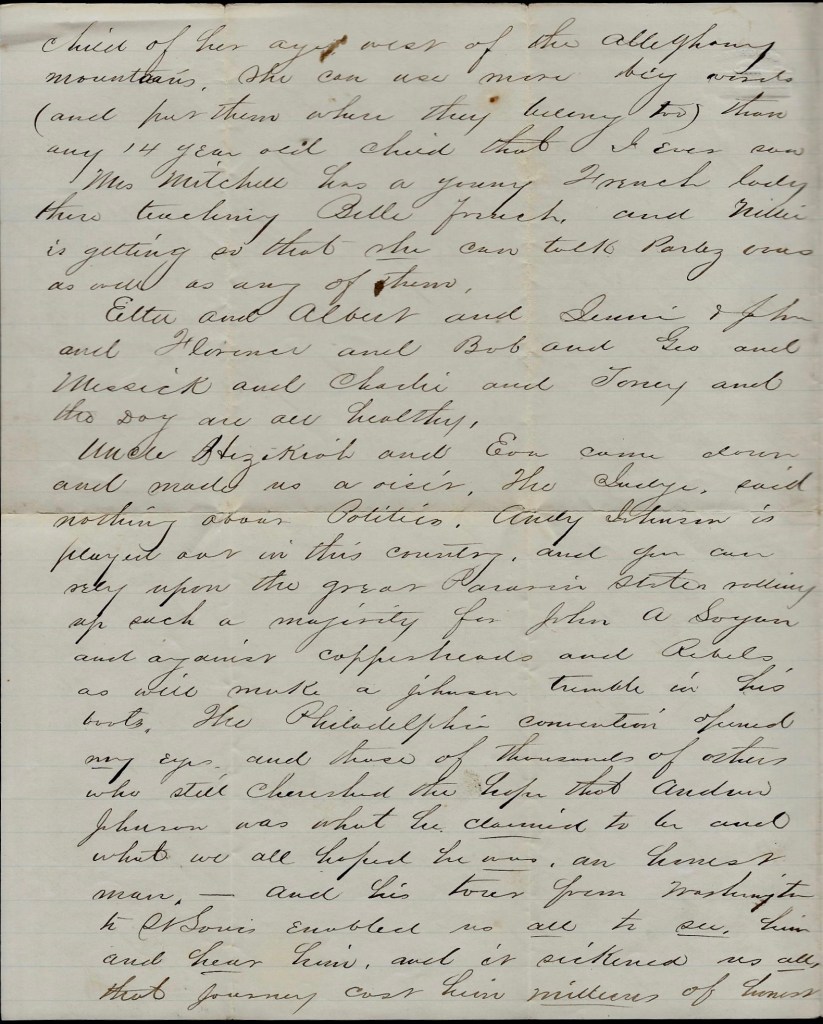 child of her age west of the Alleghany
mountains, She can use more big words
(and put them where they belong too) than
any 14 year old child that I ever saw
Mrs Mitchell has a young French lady
there teaching Belle French, and Nillie
is getting so that she can talk Parlez vous
as well as any of them.
Etta and Albert and Jennie & John
and Florence and Bob and Geo and
Messick and Charlie and Toney and
the Dog are all healthy,
Uncle Hezekiah and Eva came down
and made us a visit, The Judge, said
nothing about Politics. Andy Johnson is
played out in this country, and you can
rely upon the great State rolling
up such a majority for John A Logan
and against copperheads and Rebels
as will make a johnson tremble in his
boots. The Philadelphia convention opened
my eyes and those of thousands of others
who still cherished the hope that Andrew
Johnson was what he claimed to be and
what we all hoped he was, an honest
man, — and his tour from Washington
to St Louis enabled us all to see, him
and hear him, and it sickened us all,
that journey cost him millions of honest